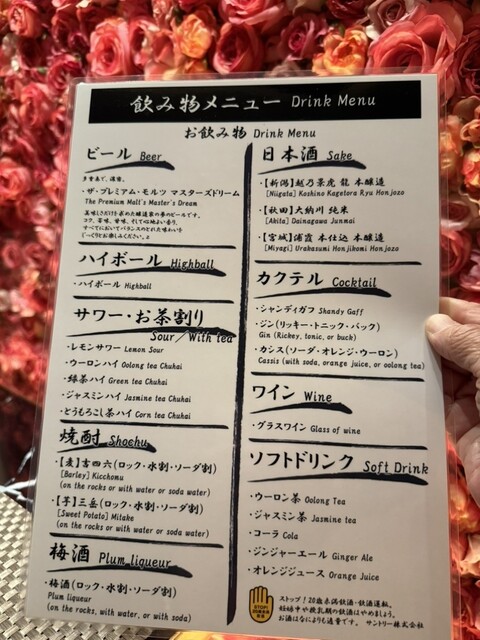 飲み物メニュー Drink Menu
お飲み物 Drink Menu
ビール Beer
・ザ・プレミアム・モルツ マスターズドリーム
The Premium Malt's Master's Dream
美味しさだけを求めた醸造家の夢のビールです。
コク、苦味、甘味、そして心地よい余り、
すべてにおいてバランスのとれた味わいを
じっくりとお楽しみください。
ハイボール Highball
・ハイボール Highball
サワー・お茶割り
Sour／With tea
・レモンサワー Lemon Sour
・ウーロンハイ Oolong tea Chuhai
・緑茶ハイ Green tea Chuhai
・ジャスミンハイ Jasmine tea Chuhai
・とうもろこし茶ハイ Corn tea Chuhai
焼酎 Shochu
・【麦】吉四六(ロック・水割・ソーダ割)
[Barley] Kicchomu
(on the rocks or with water or soda water)
・【芋】三岳(ロック・水割・ソーダ割)
[Sweet Potato] Mitake
(on the rocks or with water or soda water)
梅酒 Plum liqueur
・梅酒(ロック・水割・ソーダ割)
Plum liqueur
(on the rocks, with water, or with soda)
日本酒 Sake
・【新潟】越乃景虎 龍 本醸造
[Niigata] Koshino Kagetora Ryu Honjozo
・【秋田】大納川 純米
[Akita] Dainagawa Junmai
・【宮城】浦霞 本仕込 本醸造
[Miyagi] Urakasumi Honjikomi Honjozo
カクテル Cocktail
・シャンディガフ Shandy Gaff
・ジン(リッキー・トニック・バック)
Gin (Rickey, tonic, or buck)
・カシス(ソーダ・オレンジ・ウーロン)
Cassis (with soda, orange juice, or oolong tea)
ワイン Wine
・グラスワイン Glass of wine
ソフトドリンク Soft Drink
・ウーロン茶 Oolong Tea
・ジャスミン茶 Jasmine tea
・コーラ Cola
・ジンジャーエール Ginger Ale
・オレンジジュース Orange Juice
STOP!
ストップ！20歳未満飲酒・飲酒運転。
妊娠中や授乳期の飲酒はやめましょう。
お酒はなによりも適量です。 サントリー株式会社